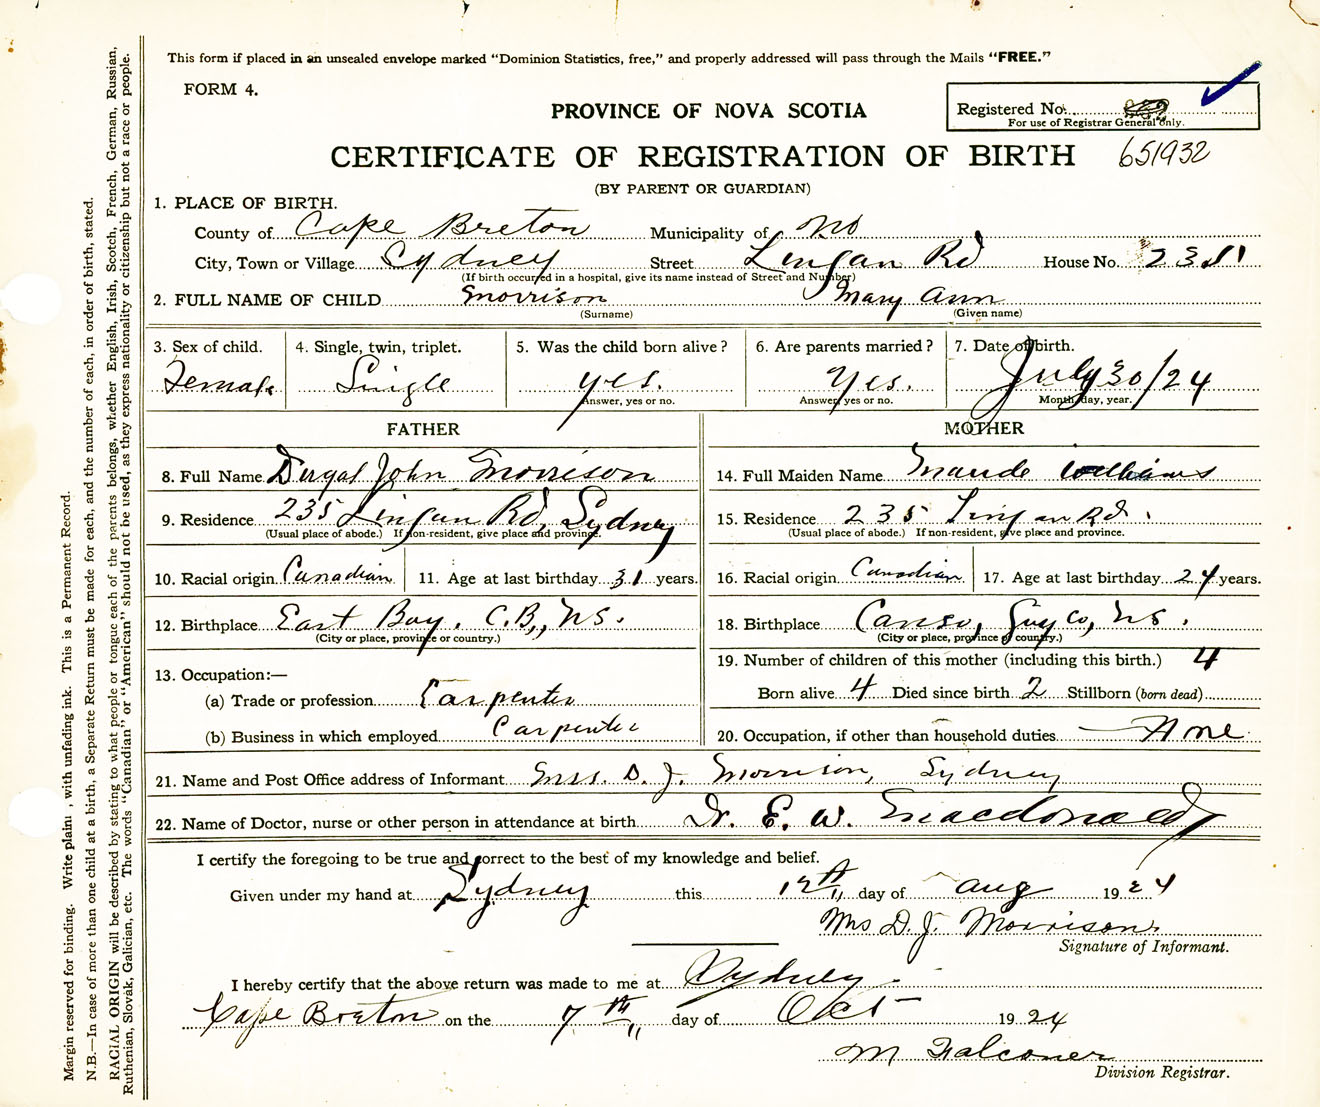 This form if placed in an unsealed envelope marked "Dominion Statistics, free," and properly addressed will pass through the Mails "FREE."
FORM 4.
PROVINCE OF NOVA SCOTIA
Registered No.
For use of Registrar General only.
CERTIFICATE OF REGISTRATION OF BIRTH 651932
(BY PARENT OR GUARDIAN)
1. PLACE OF BIRTH.
County of Cape Breton Municipality of No
City, Town or Village Sydney Street Lingan Rd House No.
(If birth occurred in a hospital, give its name instead of Street and Number)
2. FULL NAME OF CHILD Morrison Mary Ann
(Surname) (Given name)
3. Sex of child. 4. Single, twin, triplet. 5. Was the child born alive? 6. Are parents married? 7. Date of birth.
Female Single yes. Yes. July 30/24
Answer, yes or no. Answer, yes or no. Month, day, year.
FATHER MOTHER
8. Full Name John Morrison 14. Full Maiden Name Maude Williams
9. Residence 235 Lingan Rd, Sydney 15. Residence 235 Lingan Rd.
(Usual place of abode.) If non-resident, give place and province. (Usual place of abode.) If non-resident, give place and province.
10. Racial origin Canadian 11. Age at last birthday 31 years. 16. Racial origin Canadian 17. Age at last birthday 24 years.
12. Birthplace East Bay, C.B., N.S. 18. Birthplace Canso, Guy Co, N.S.
(City or place, province or country.) (City or place, province or country.)
19. Number of children of this mother (including this birth.) 4
13. Occupation:—
(a) Trade or profession Carpenter Born alive 4 Died since birth 2 Stillborn (born dead)
(b) Business in which employed Carpenter 20. Occupation, if other than household duties None
21. Name and Post Office address of Informant Mrs. D. J. Morrison, Sydney
22. Name of Doctor, nurse or other person in attendance at birth Dr. E. W. Macdonald
I certify the foregoing to be true and correct to the best of my knowledge and belief.
Given under my hand at Sydney this 12th day of Aug 1924
Mrs D. J. Morrison
Signature of Informant.
I hereby certify that the above return was made to me at Sydney
Cape Breton on the 7th day of Oct 1924
M Falconer
Division Registrar.
Margin reserved for binding. Write plainly, with unfading ink. This is a Permanent Record.
N.B.—In case of more than one child at a birth, a Separate Return must be made for each, and the number of each, in order of birth, stated.
RACIAL ORIGIN will be described by stating to what people or tongue each of the parents belongs, whether English, Irish, Scotch, French, German, Russian,
Ruthenian, Slovak, Galician, etc. The words "Canadian" or "American" should not be used, as they express nationality or citizenship but not a race or people.